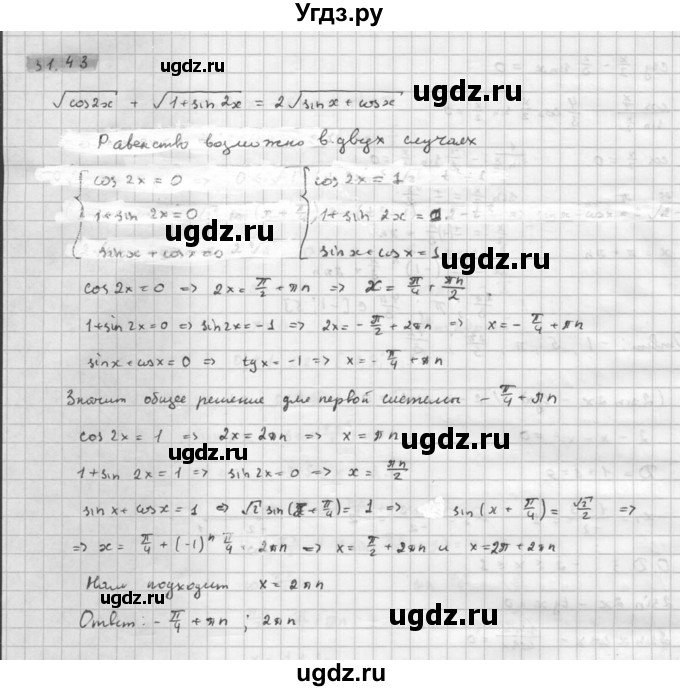 Угдз.ру
31.43
ugdz.ru
ugdz.ru
√cos2x + √1+sin 2x = 2√sin x + cos x
Равенство возможно в двух случаях
cos 2x = 0 cos 2x = 1
1+sin 2x = 0 1+sin 2x = 1
sin x + cos x = 0 sin x + cos x = 1
ugdz.ru
ugdz.ru
cos 2x = 0 => 2x = π/2 + πn => x = π/4 + πn/2
ugdz.ru
1+sin 2x = 0 => sin 2x = -1 => 2x = -π/2 + 2πn => x = -π/4 + πn
sin x + cos x = 0 => tg x = -1 => x = -π/4 + πn
ugdz.ru
Значит общее решение для первой системы -π/4 + πn
cos 2x = 1 => 2x = 2πn => x = πn
ugdz.ru
1+sin 2x = 1 => sin 2x = 0 => x = πn/2
ugdz.ru
sin x + cos x = 1 => √2 sin (x + π/4) = 1 => sin (x + π/4) = √2/2 =>
=> x = π/4 + (-1)ⁿ π/4 2πn => x = π/2 + 2πn и x = 2π + 2πn
ugdz.ru
Нам подходит x = 2πn
ugdz.ru
Ответ: -π/4 + πn ; 2πn
ugdz.ru
ugdz.ru